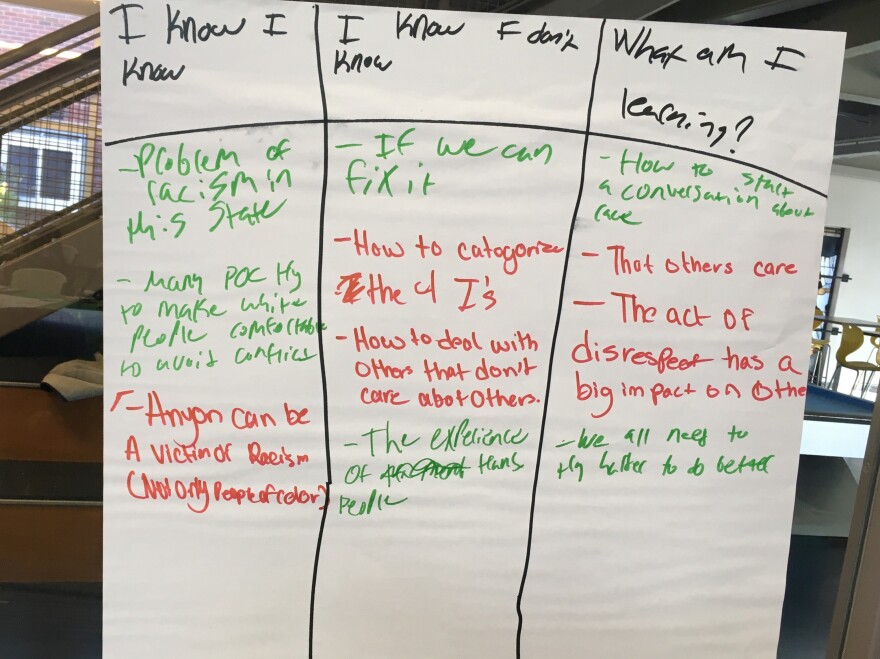 I know I
know
- Problem of
racism in
this state
- Many POC try
to make white
people comfortable
to avoid conflict
- Anyon can be
A victim of Racism
(Not only People of color)
I know I don't
know
- If we can
fix it
- How to catogorize
the 4 I's
- How to deal with
others that don't
care abot others.
- The experience
of trans
people
What am I
learning?
- How to start
a conversation about
race
- That others care
- The act of
disrespect has a
big impact on othe
- We all need to
try harder to do better